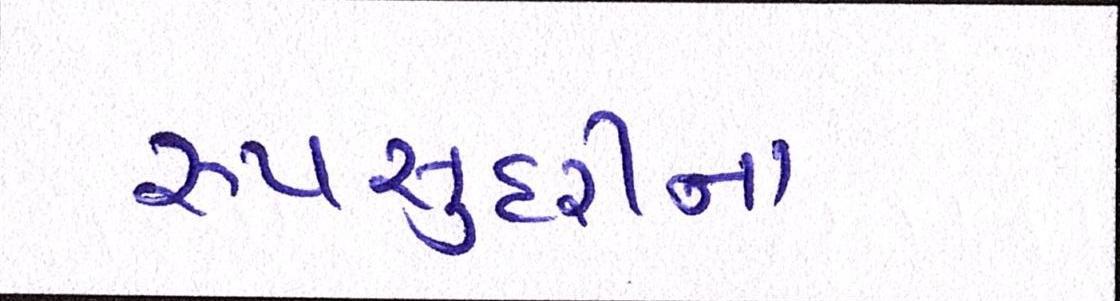 રૂપસુદરીના